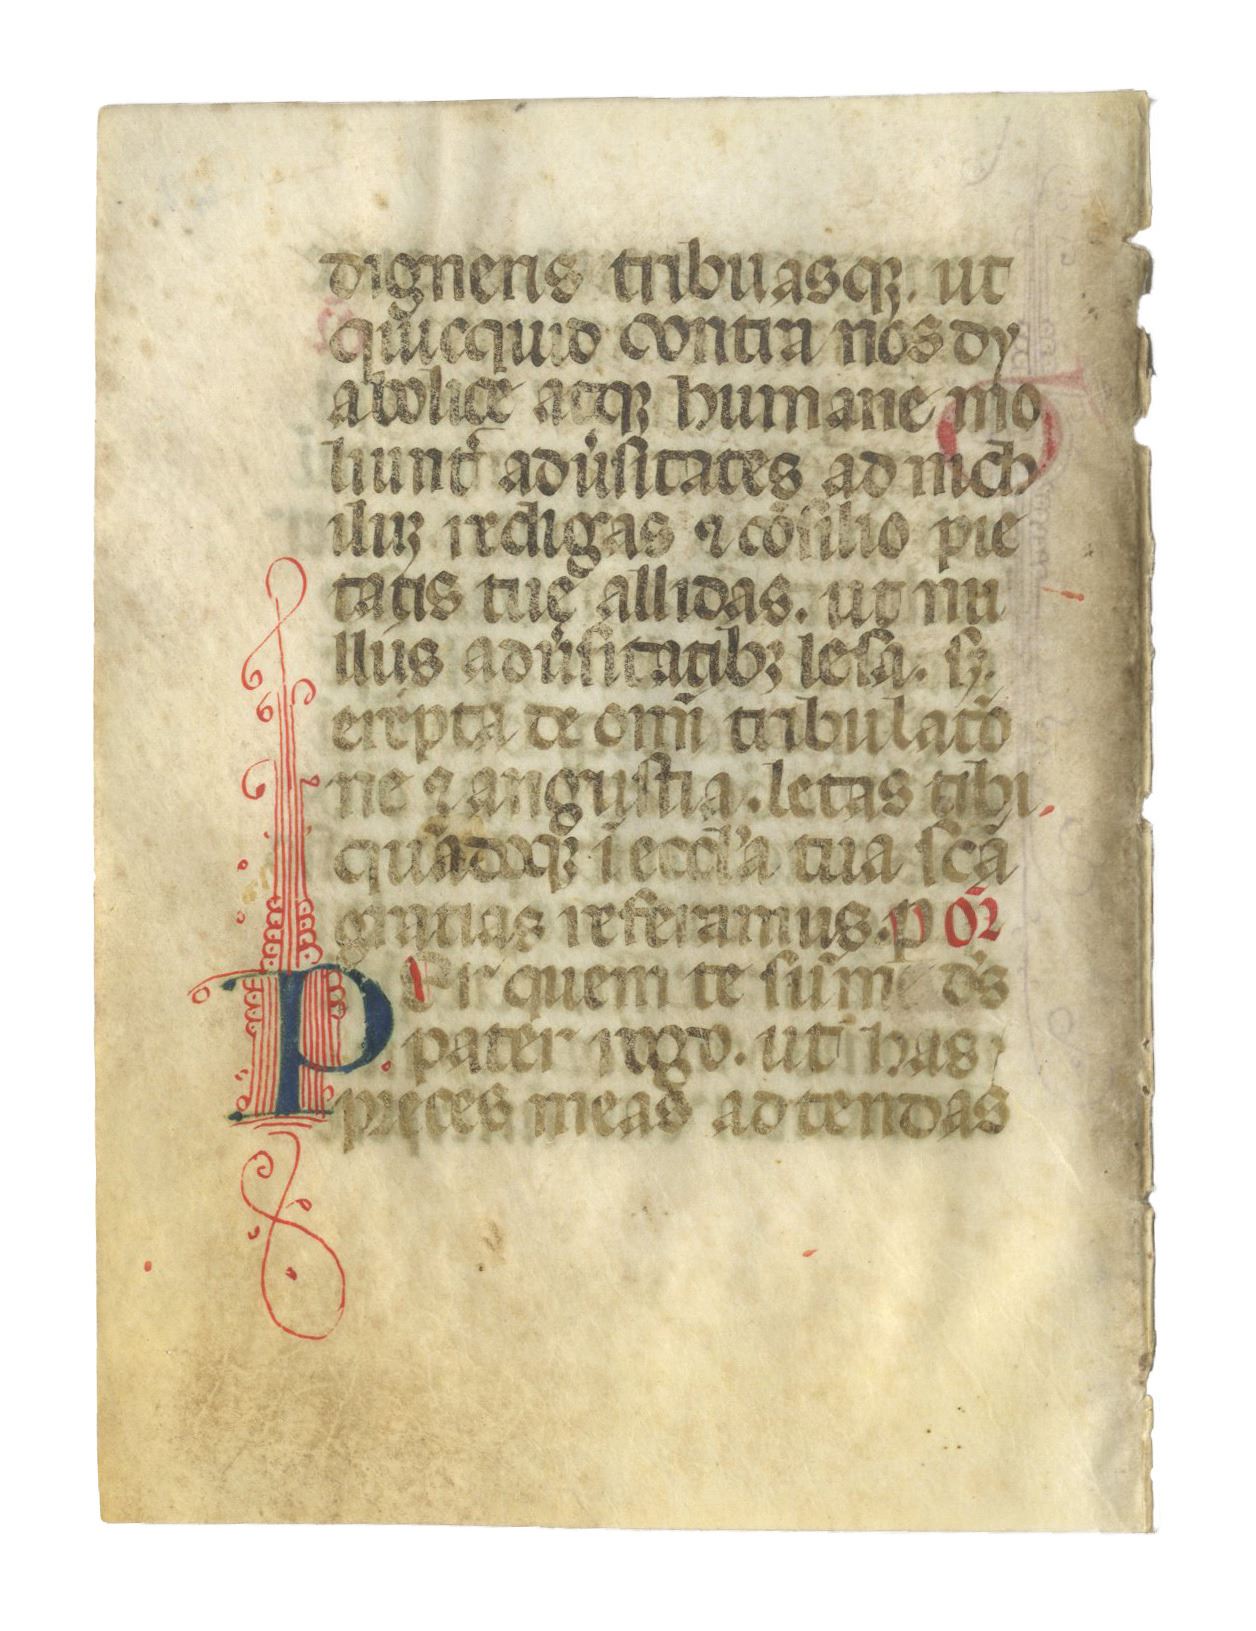 digneris tribuasqꝫ. ut
quicquid contra nos dy
abolice atqꝫ humane mo
liunt᷑ adũsitates ad nich
ilũ redigas ⁊ cõsilio pie
tatis tuę allidas. ut nu
llis adũsitatibꝫ lesa. sꝫ.
erepta de omĩ tribulatiõ
ne ⁊ angustia. letas tibi
quãdoqꝫ ĩ eccl'a tua scã
gratias referamus. P Or̃
PEr quem te sum̃e d's
pater rogo. ut has
pręces meas adtendas